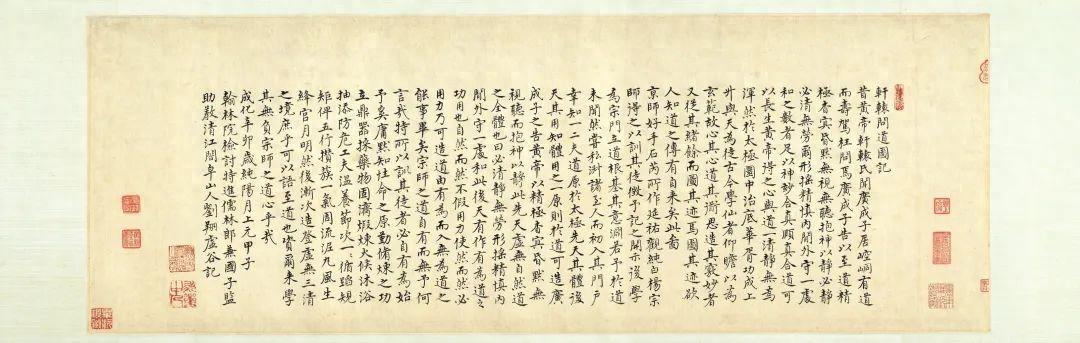 軒轅問道圖記
昔黃帝軒轅氏聞廣成子居崆峒有道
而壽駕往問焉廣成子告以至道精
極杳冥昏黙無視無聽抱神以靜必靜
必清無勞爾形搖精慎內閉外守一處
和之數者足以神妙合真頤真合道可
以長生黃帝得之心與道一清靜無為
渾然於太極圖中治底華胥功成上
升與天為徒古今學仙者仰瞻以為
玄範放心其心道其道衍思造其襄妙者
又從其緒餘而圖其迹焉圖其迹欲
人知道之傳有自來矣此啚
京師好手石芮所作延祐觀純白楊宗
師得之以訓其徒徵予記之開示後學
為宗門立道根基其意洞若予於道
未聞然嘗私淑諸至人而初入其門戶
幸知一二夫道原於太極先天其體後
天其用知體用之一原則於道可造廣
成子之告黃帝以精極杳冥昏黙無
視聽而抱神以靜此先天虛無自然道
之全體也曰必清靜無勞形搖精慎內
閉外守一處和此後天有作有為道之
功用也自然而然不假用力使然而然必
用力乃可造道由有為而入無為道之
能事畢矣宗師之道自有而無予何
言哉特所以訓其徒者必自有為始
予奚庸黙知性命之原勤脩煉之功
立鼎器採藥物固濟煅煉火候沐浴
抽添防危工夫溫養節次一一循蹈規
矩俾五行攢簇一氣周流泥丸風生
絳宮月明然後漸次造登虛無三清
之境庶乎可以語至道也賓爾來學
其無負宗師之道心乎哉
成化辛卯歲純陽月上元甲子
翰林院檢討特進儒林郎兼國子監
助教清江閤皁山人劉翔虛谷記